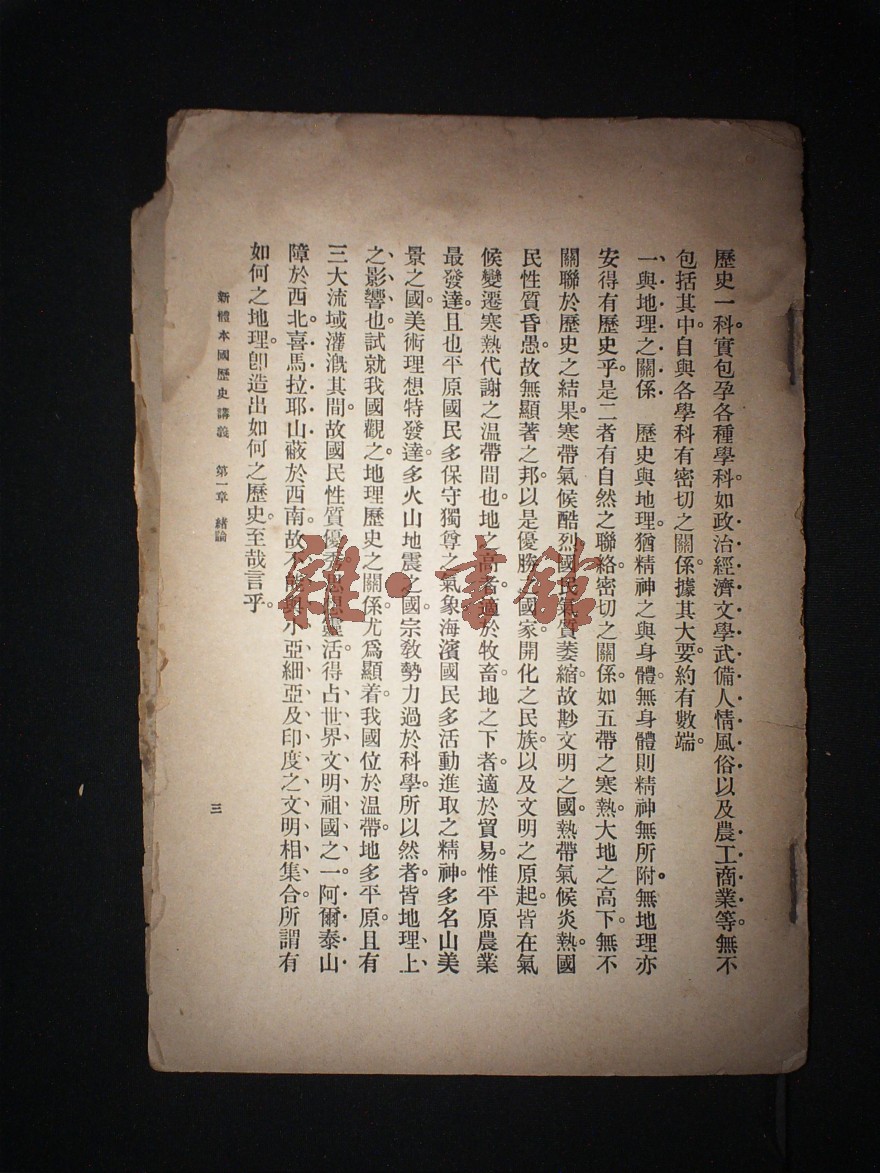 歷史一科。實包孕各種學科。如政治經濟文學武備人情風俗以及農工商業等。無不
包括其中。自與各學科有密切之關係。據其大要。約有數端。
一、與地理之關係　歷史與地理。猶精神之與身體。無身體則精神無所附。無地理亦
安得有歷史乎。是二者有自然之聯絡。密切之關係。如五帶之寒熱。大地之高下。無不
關聯於歷史之結果。寒帶氣候酷烈。國民氣質萎縮。故尠文明之國。熱帶氣候炎熱。國
民性質昏愚。故無顯著之邦。以是優勝之國家。開化之民族。以及文明之原起。皆在氣
候變遷寒熱代謝之温帶間也。地之高者。適於牧畜。地之下者。適於貿易。惟平原農業
最發達。且也平原國民多保守獨尊之氣象。海濱國民多活動進取之精神。多名山美
景之國。美術理想特發達。多火山地震之國。宗敎勢力過於科學。所以然者。皆地理上
之影響也。試就我國觀之。地理歷史之關係。尤爲顯着。我國位於温帶。地多平原。且有
三大流域灌漑其間。故國民性質優秀。思想靈活。得占世界文明祖國之一。阿爾泰山
障於西北。喜馬拉耶山蔽於西南。故不能與小亞細亞及印度之文明相集合。所謂有
如何之地理。卽造出如何之歷史。至哉言乎。
新體本國歷史講義　第一章　緒論
三
雜·書館